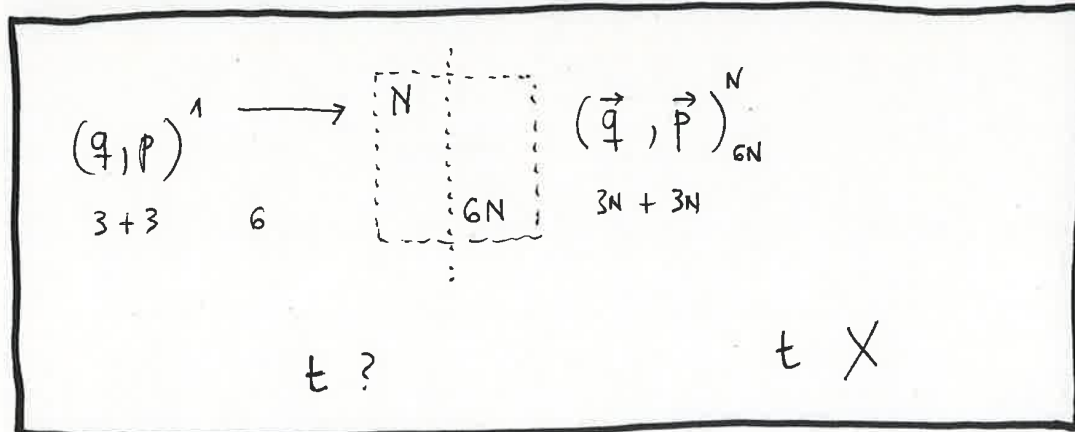 (q, p)¹ ⟶ N (q⃗, p⃗)ᴺ₆ɴ
3 + 3 6 6N 3N + 3N
t ? t X